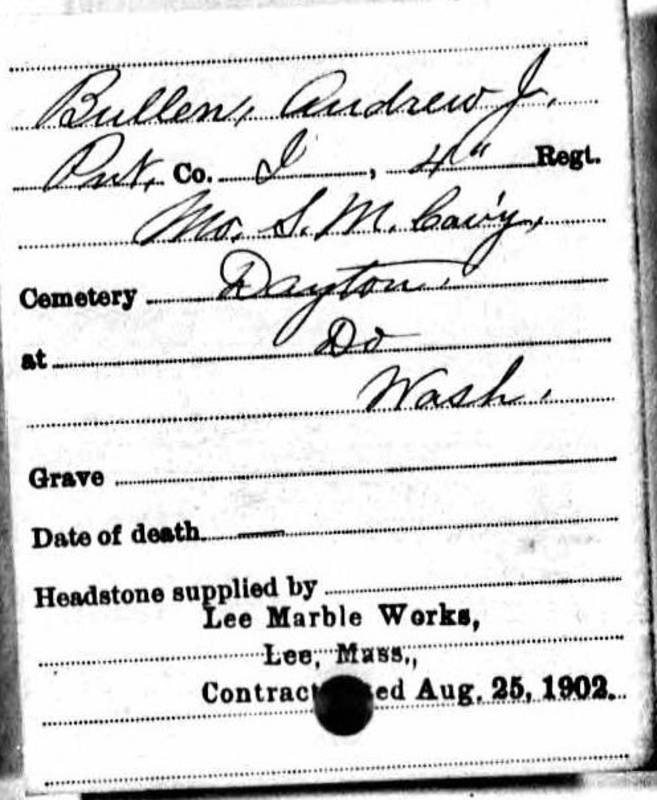 Bullen, Andrew J.
Pvt. Co. I, 4" Regt.
Mo. S. M. Cav'y.
Cemetery Dayton.
at Do
Wash.
Grave
Date of death —
Headstone supplied by
Lee Marble Works,
Lee, Mass.,
Contract ed Aug. 25, 1902.